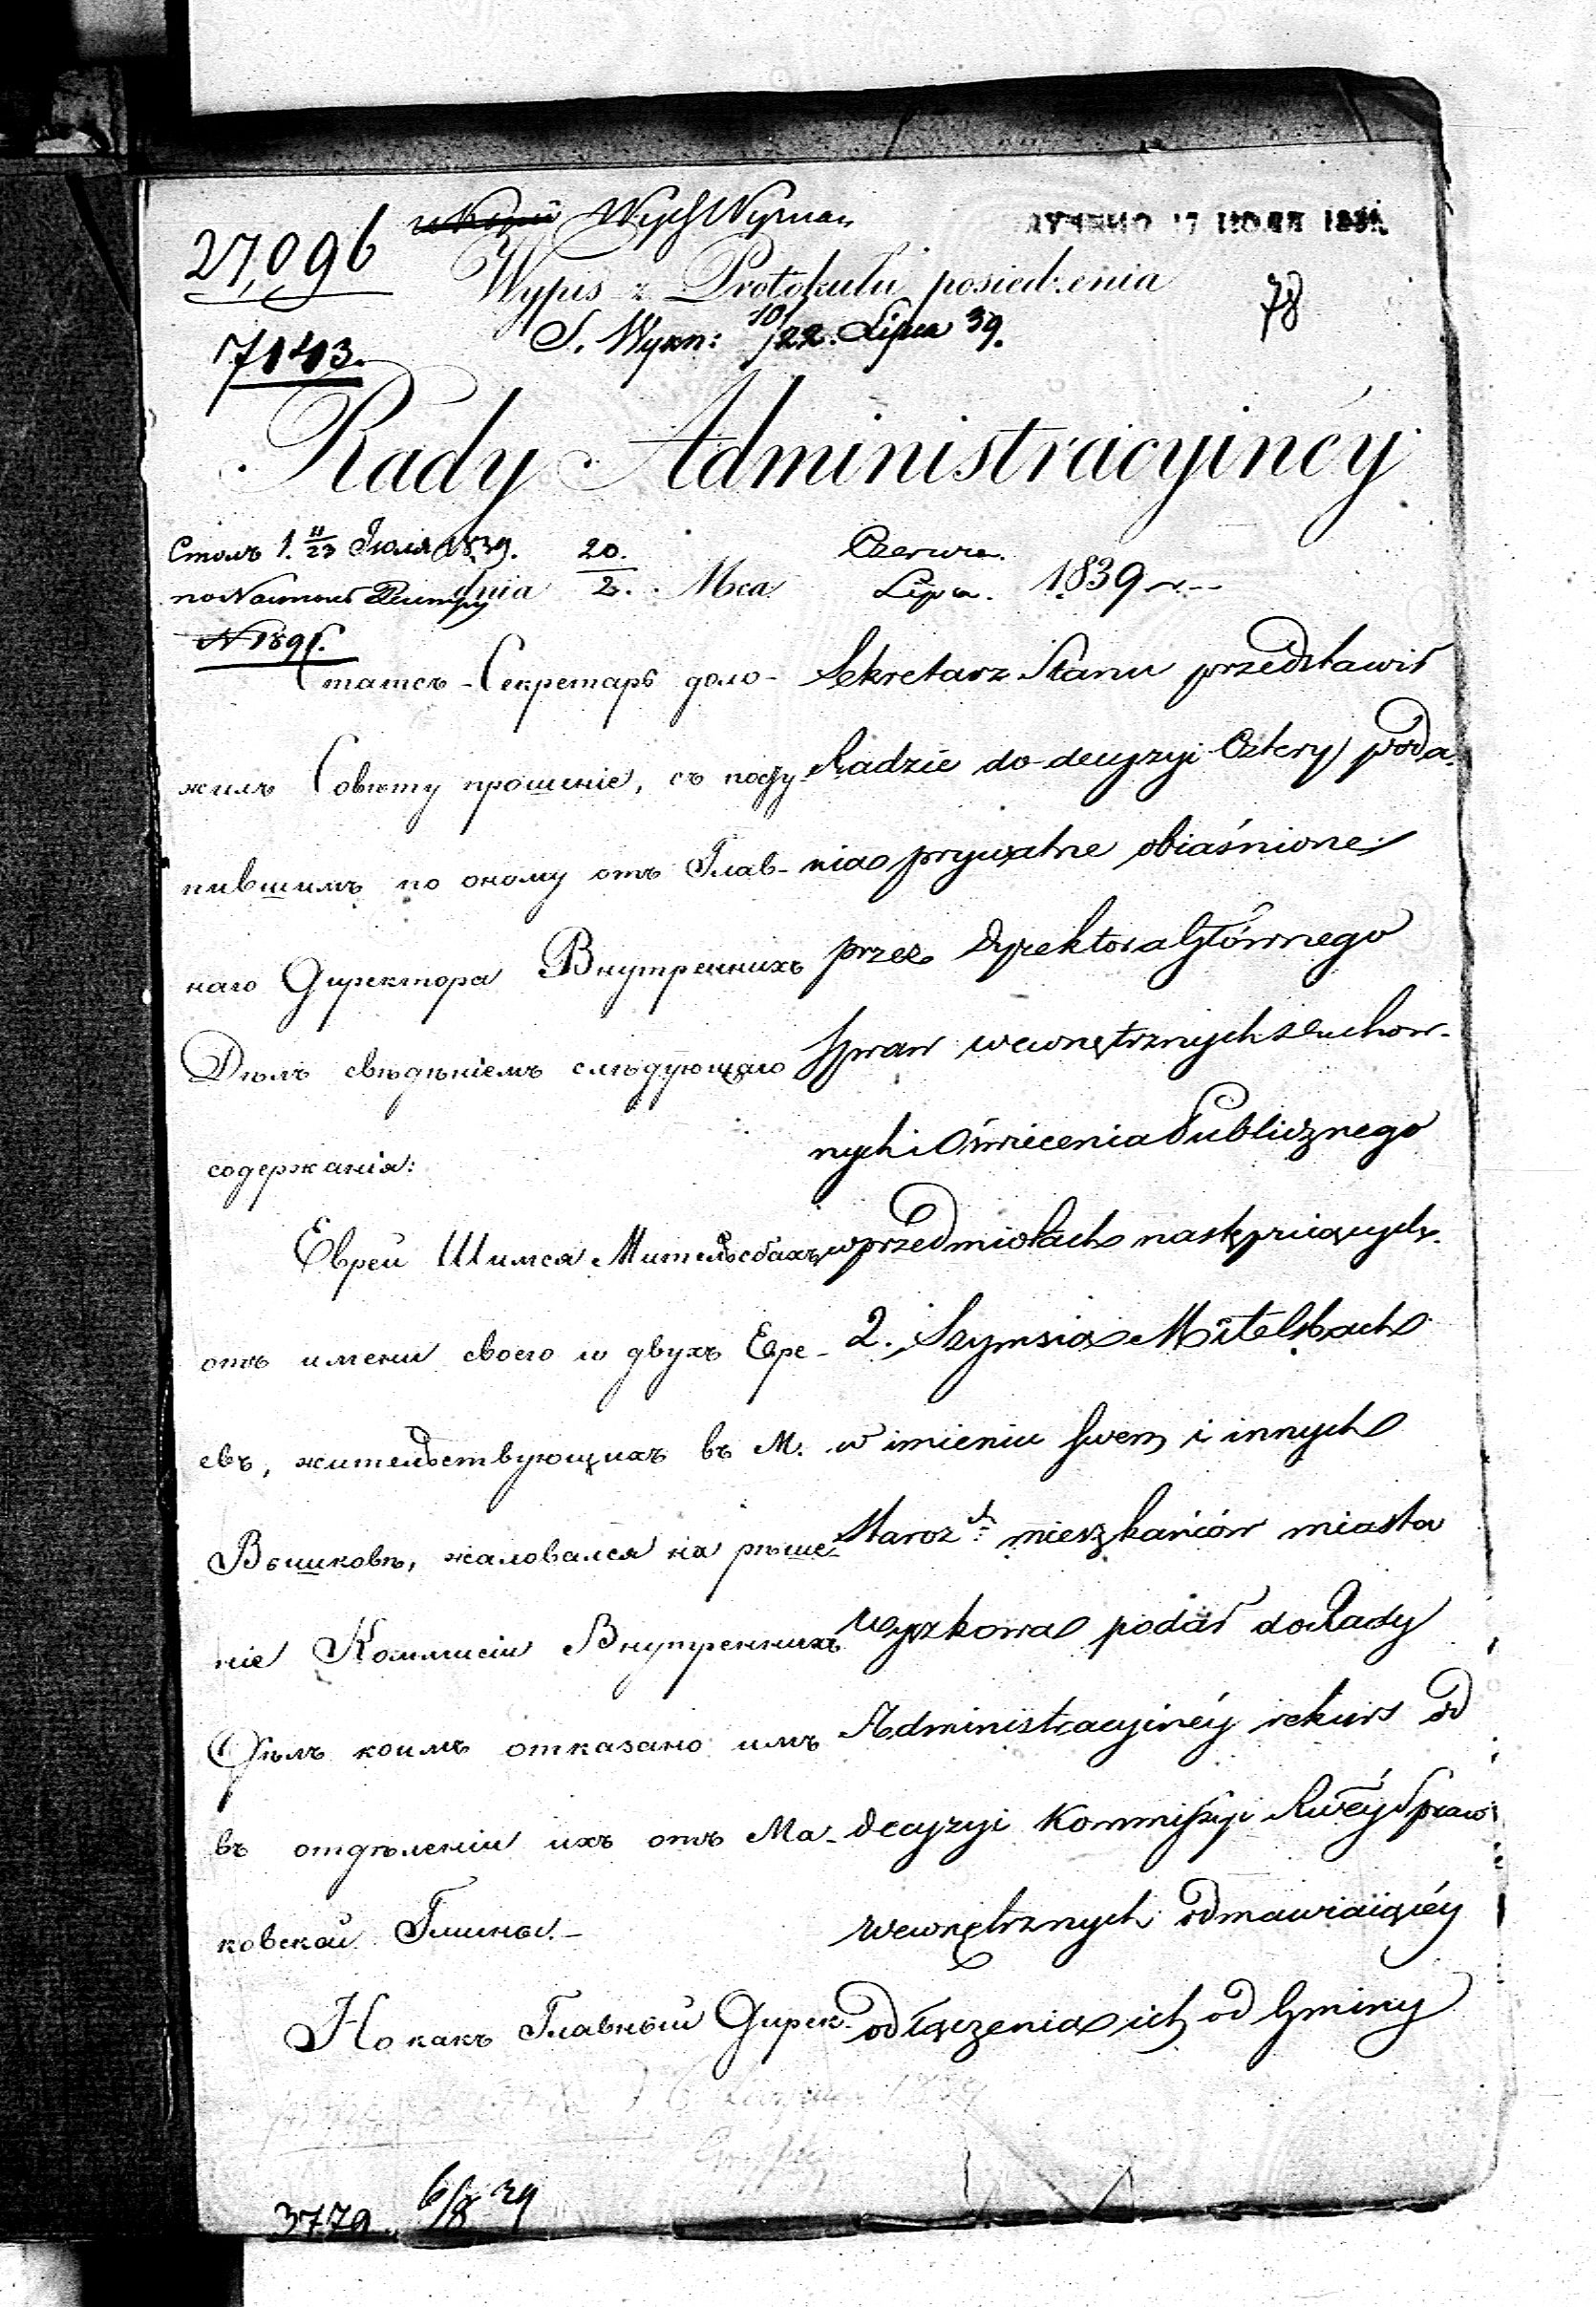 27,096
Wypis z Protokułu posiedzenia
S. Wykn: 10/22. Lipca 39.
78
7143.
Rady Administracyinéy
Столъ 1. 11/23 Іюля 1839.
по Настол Реестру
№ 1891.
dnia 20./2. Mca Czerwca./Lipca. 1839 r.
Статсъ-Секретарь доло-
жилъ Совѣту прошеніе, съ посту-
пившимъ по оному отъ Глав-
наго Директора Внутреннихъ
Дѣлъ свѣдѣніемъ слѣдующаго
содержанія:
Еврей Шимся Мительсбахъ
отъ имени своего и двухъ Евре-
евъ, жительствующихъ въ М.
Вышковѣ, жаловался на рѣше-
ніе Коммисіи Внутреннихъ
Дѣлъ коимъ отказано имъ
въ отдѣленіи ихъ отъ Ма-
ковской Гмины.-
Но какъ Главный Дирек-
Sekretarz Stanu przedstawił
Radzie do decyzyi Cztery poda-
nia prywatne obiaśnione
przez Dyrektora Głównego
Spraw wewnętrznych Duchow-
nych i Oświecenia Publicznego
w przedmiotach następuiących.
2. Szymsia Mitelsbach
w imieniu swem i innych
Staroz: mieszkańców miasta
Wyszkowa podał do Rady
Administracyinéy rekurs od
decyzyi Kommissyi Rwéy Spraw
wewnętrznych odmawiaiącéy
odłączenia ich od Gminy
3779. 6/8 39